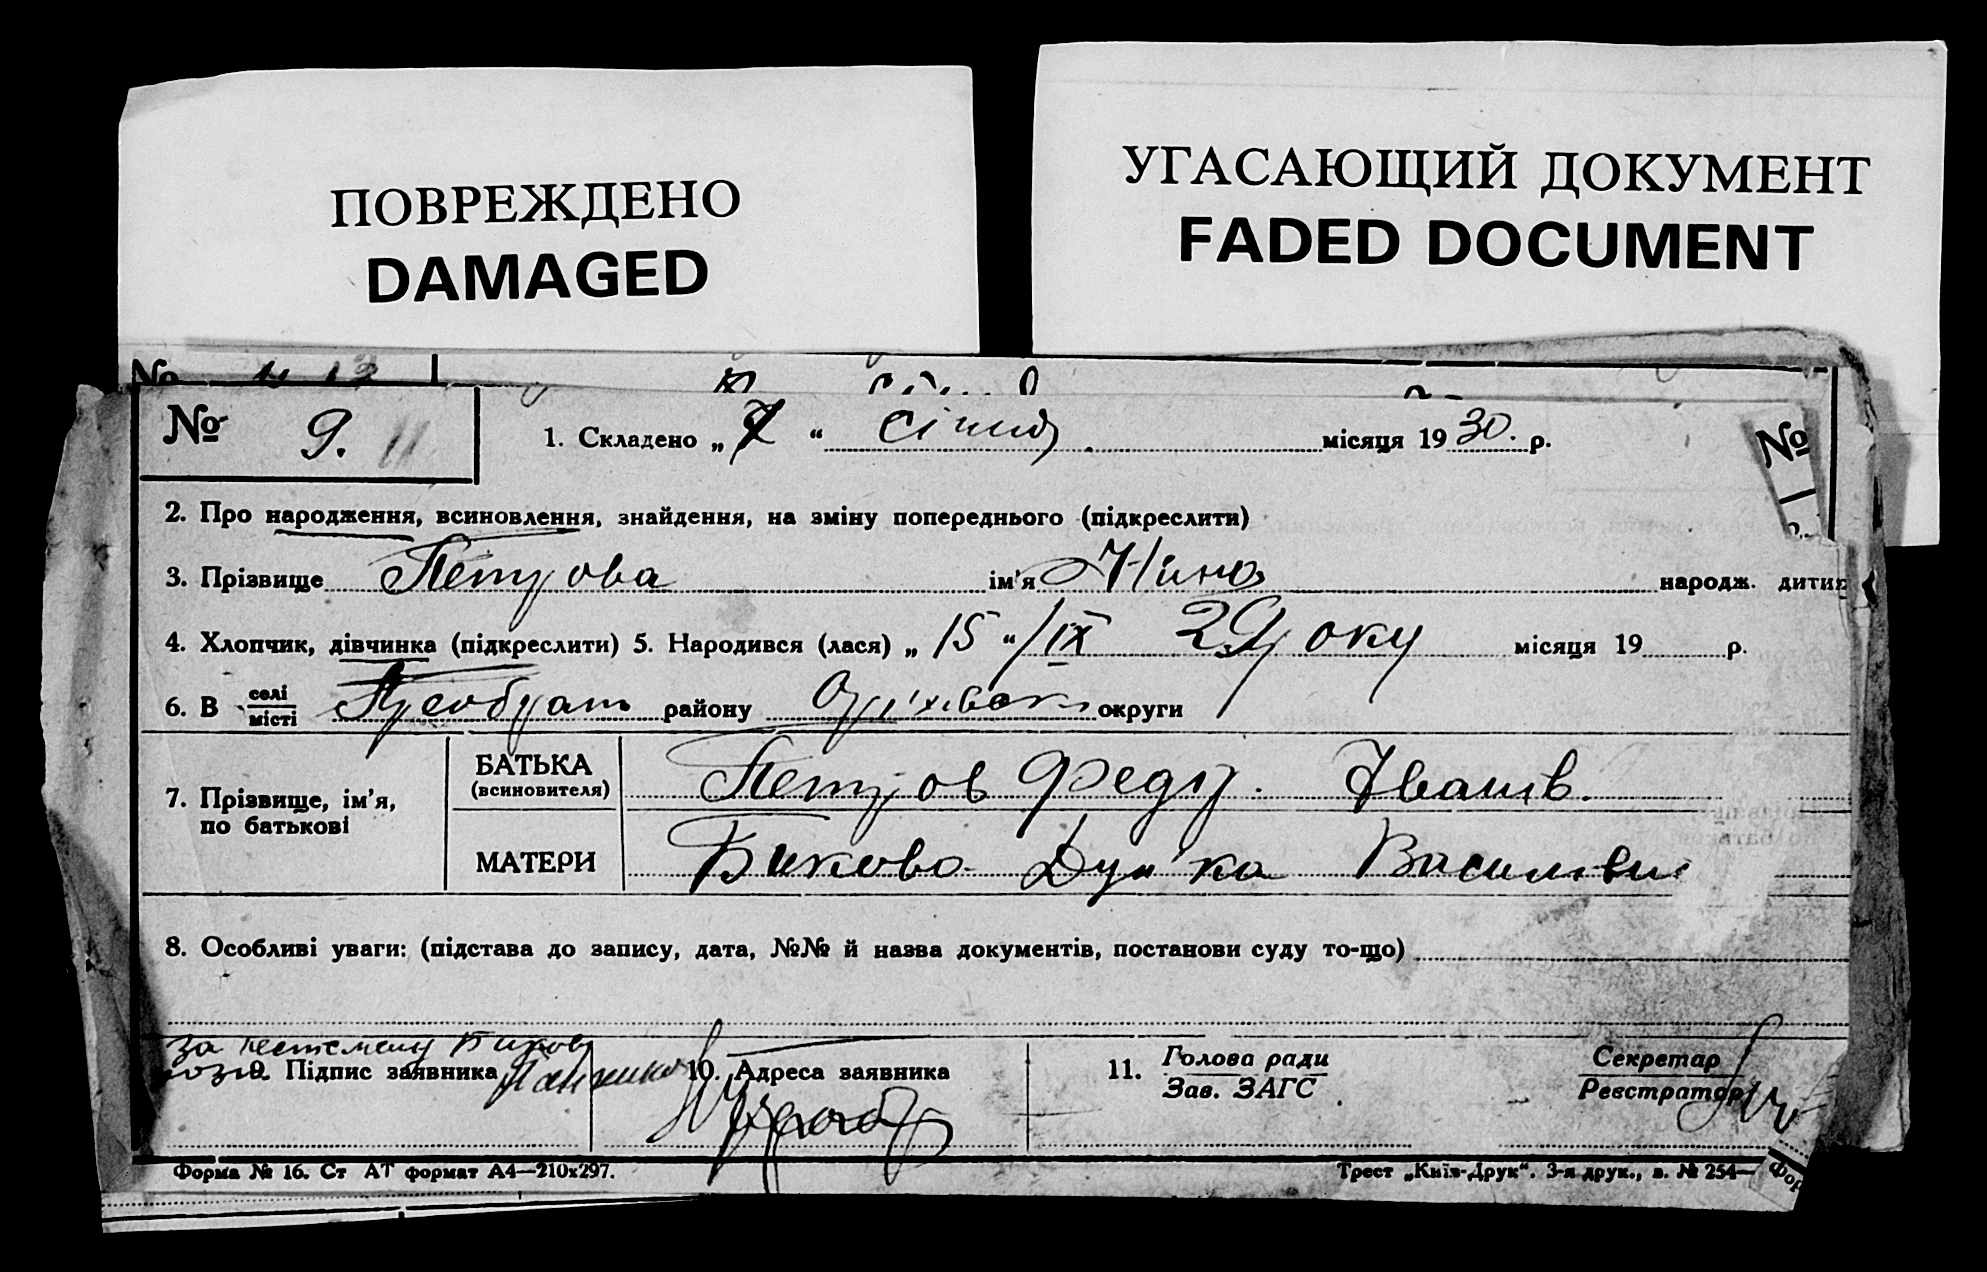 ПОВРЕЖДЕНО
DAMAGED
УГАСАЮЩИЙ ДОКУМЕНТ
FADED DOCUMENT
№ 9. 11
1. Складено „ 7 “ січня місяця 19 30. р.
№
2. Про народження, всиновлення, знайдення, на зміну попереднього (підкреслити)
3. Прізвище Петрова ім'я Нина народж. дитин
4. Хлопчик, дівчинка (підкреслити) 5. Народився (лася) „ 15 “ / IX 29 року місяця 19 р.
6. В селі
місті Преображ району Оріхівськ округи
7. Прізвище, ім'я,
по батькові
БАТЬКА
(всиновителя)
Петров Федір. Іванів.
МАТЕРИ
Бикова Дун'ка Василівни
8. Особливі уваги: (підстава до запису, дата, №№ й назва документів, постанови суду то-що)
За Бикову
9. Підпис заявника
10. Адреса заявника
11. Голова ради
Зав. ЗАГС
Секретар
Реєстратор
Форма № 16. Ст АТ формат А4—210х297.
Трест „Київ-Друк“. 3-я друк., в. № 254—
Фор